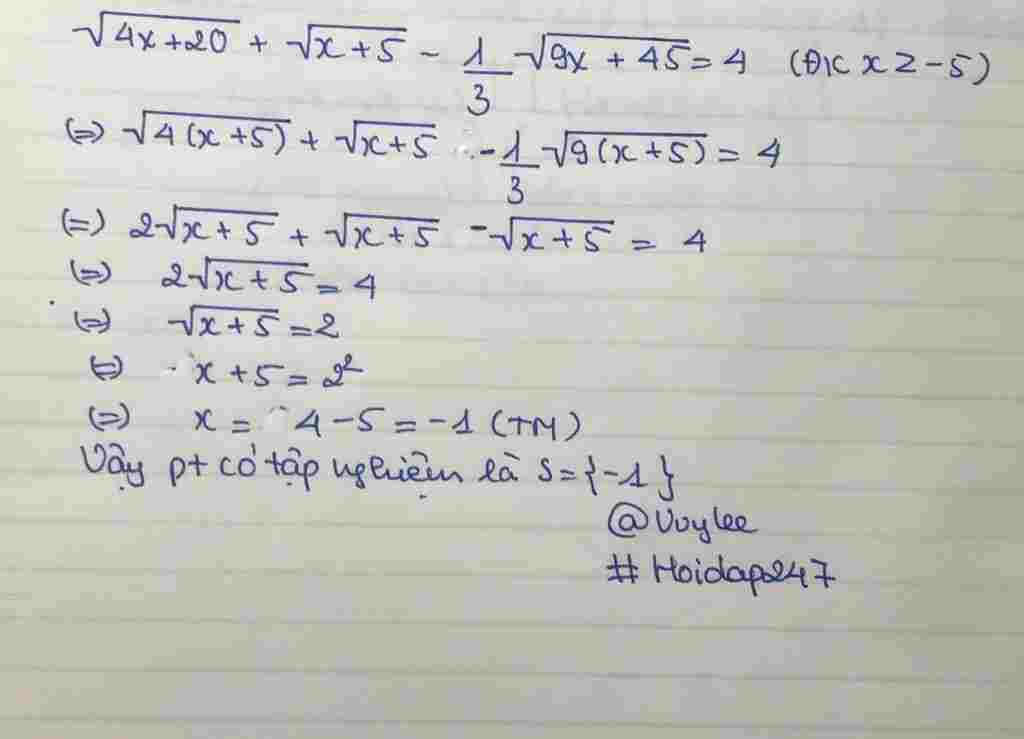 √4x+20 + √x+5 - 1/3 √9x + 45 = 4 (ĐK x ≥ -5)
(=) √4(x+5) + √x+5 - 1/3 √9(x+5) = 4
(=) 2√x+5 + √x+5 - √x+5 = 4
(=) 2√x+5 = 4
(=) √x+5 = 2
(=) x+5 = 2²
(=) x = 4-5 = -1 (TM)
Vậy pt có tập nghiệm là S={-1}
@Vuylee
# Hoidap247